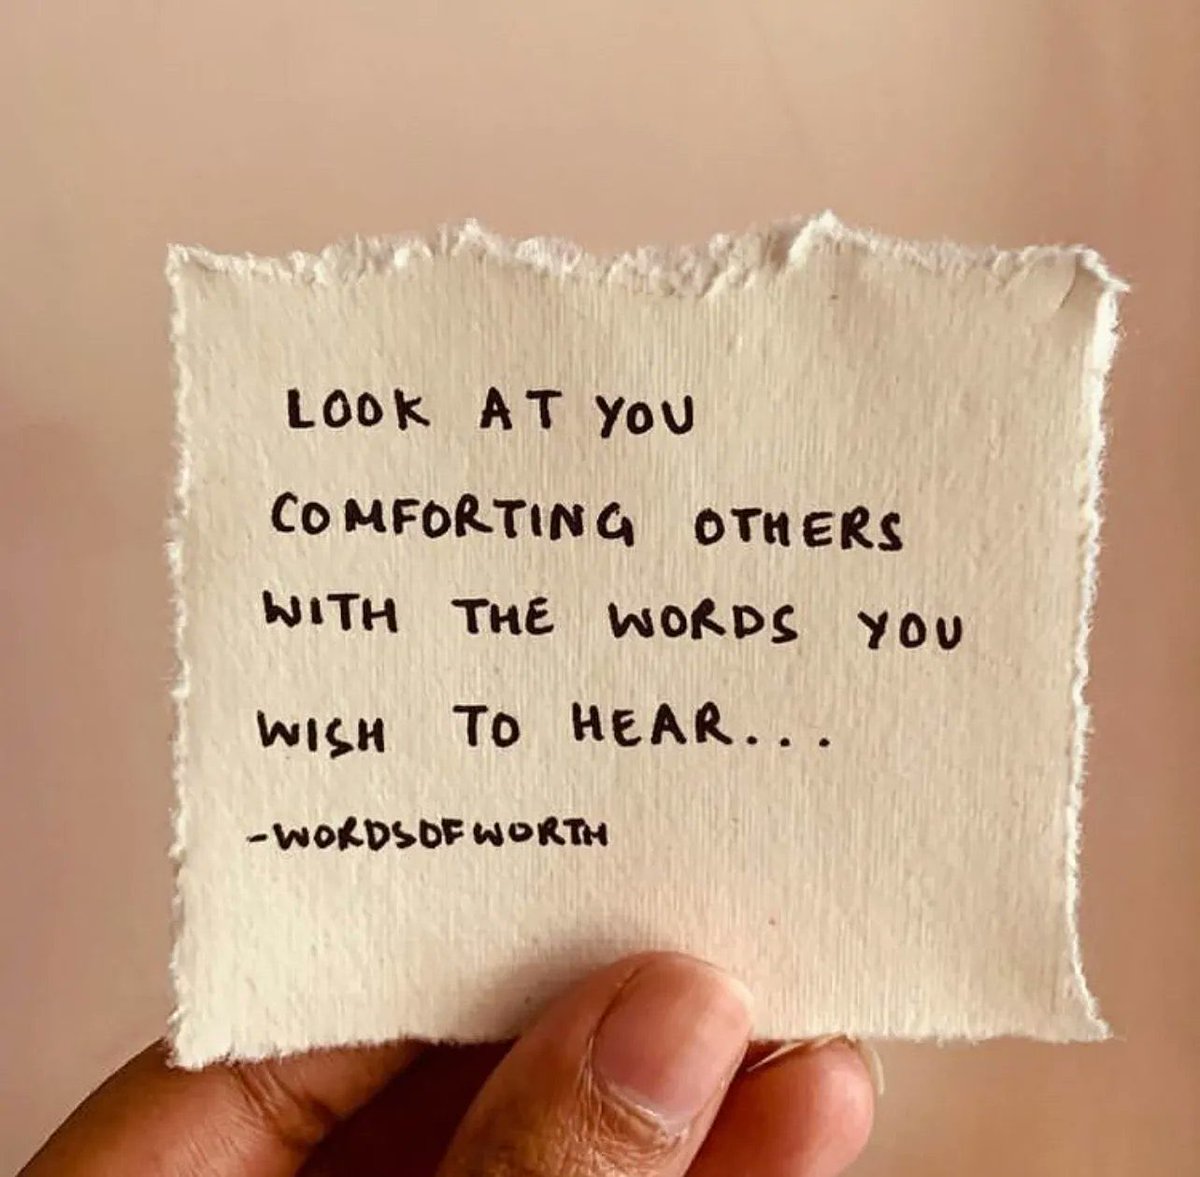 LOOK AT YOU
COMFORTING OTHERS
WITH THE WORDS YOU
WISH TO HEAR...
-WORDSOFWORTH